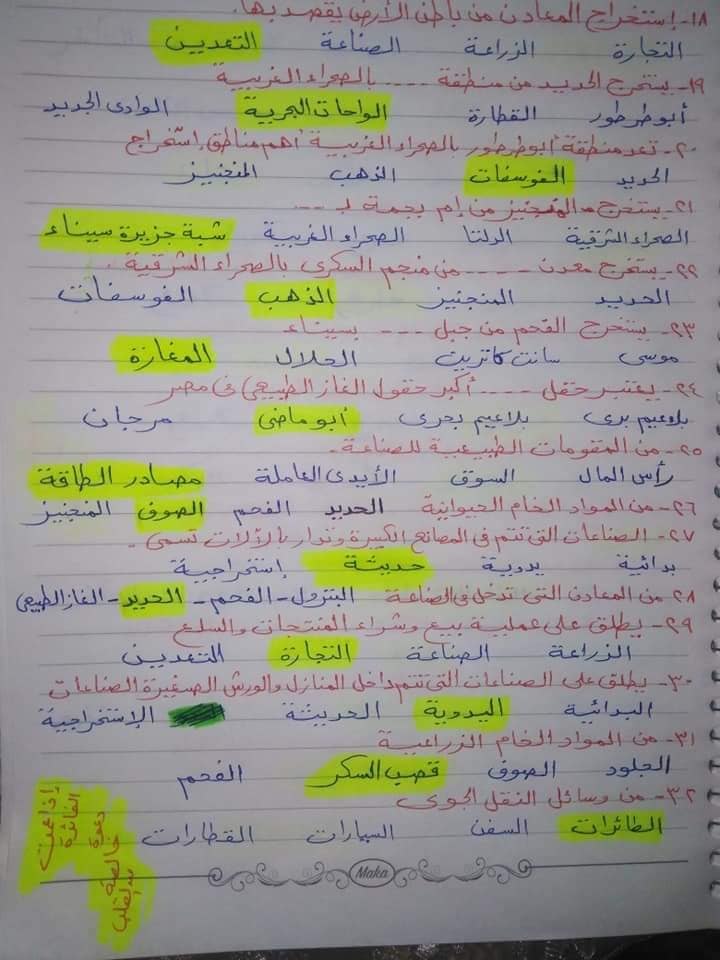 ١٨- إستخراج المعادن من باطن الأرض يقصد بها.
التجارة الزراعة الصناعة التعدين
١٩- يستخرج الحديد من منطقة .... بالصحراء الغربية
أبو طرطور القطارة الواحات البحرية الوادى الجديد
٢٠- تعد منطقة أبو طرطور بالصحراء الغربية أهم مناطق إستخراج
الحديد الفوسفات الذهب المنجنيز
٢١- يستخرج المنجنيز من إم بجمة بـ ....
الصحراء الشرقية الدلتا الصحراء الغربية شبة جزيرة سيناء
٢٢- يستخرج معدن .... من منجم السكرى بالصحراء الشرقية.
الحديد المنجنيز الذهب الفوسفات
٢٣- يستخرج الفحم من جبل .... بسيناء
موسى سانت كاتريت الحلال المغارة
٢٤- يعتبر حقل .... أكبر حقول الغاز الطبيعى فى مصر
بلاعيم برى بلاعيم بحرى أبو ماضى مرجان
٢٥- من المقومات الطبيعية للصناعة.
رأس المال السوق الأيدى العاملة مصادر الطاقة
٢٦- من المواد الخام الحيوانية الحديد الفحم الصوف المنجنيز
٢٧- الصناعات التى تتم فى المصانع الكبيرة وتدار بالآلات تسمى.
بدائية يدوية حديثة إستخراجية
٢٨- من المعادن التى تدخل فى الصناعة البترول - الفحم - الحديد - الغاز الطبيعى
٢٩- يطلق على عملية بيع وشراء المنتجات والسلع
الزراعة الصناعة التجارة التعدين
٣٠- يطلق على الصناعات التى تتم داخل المنازل والورش الصغيرة الصناعات
البدائية اليدوية الحديثة الإستخراجية
٣١- من المواد الخام الزراعية
الجلود الصوف قصب السكر الفحم
٣٢- من وسائل النقل الجوى
الطائرات السفن السيارات القطارات
إذا عمت
الفائدة
دعوة
خالصة
من القلب
Maka